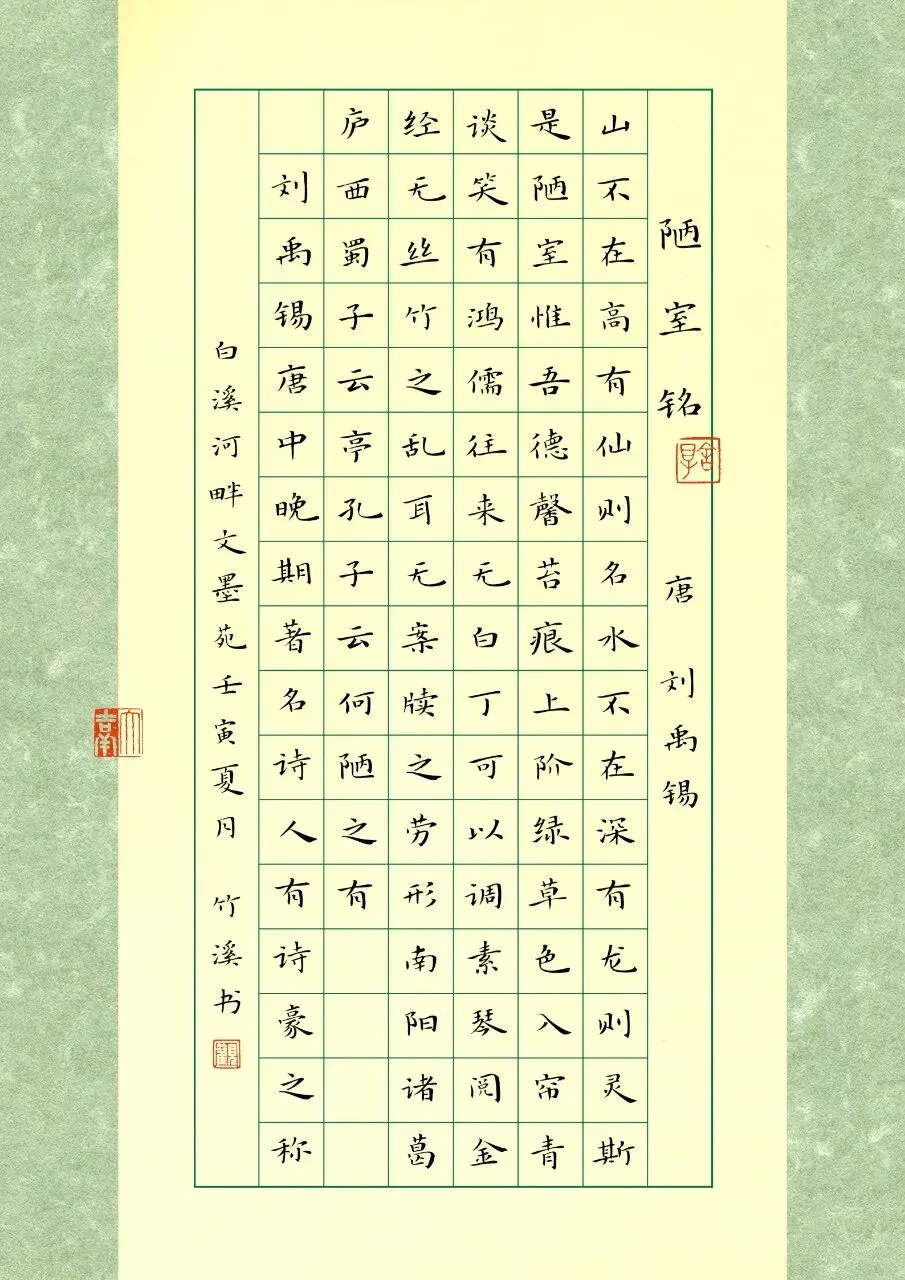 陋室铭 唐 刘禹锡
山不在高有仙则名水不在深有龙则灵斯
是陋室惟吾德馨苔痕上阶绿草色入帘青
谈笑有鸿儒往来无白丁可以调素琴阅金
经无丝竹之乱耳无案牍之劳形南阳诸葛
庐西蜀子云亭孔子云何陋之有
刘禹锡唐中晚期著名诗人有诗豪之称
白溪河畔文墨苑壬寅夏月 竹溪书